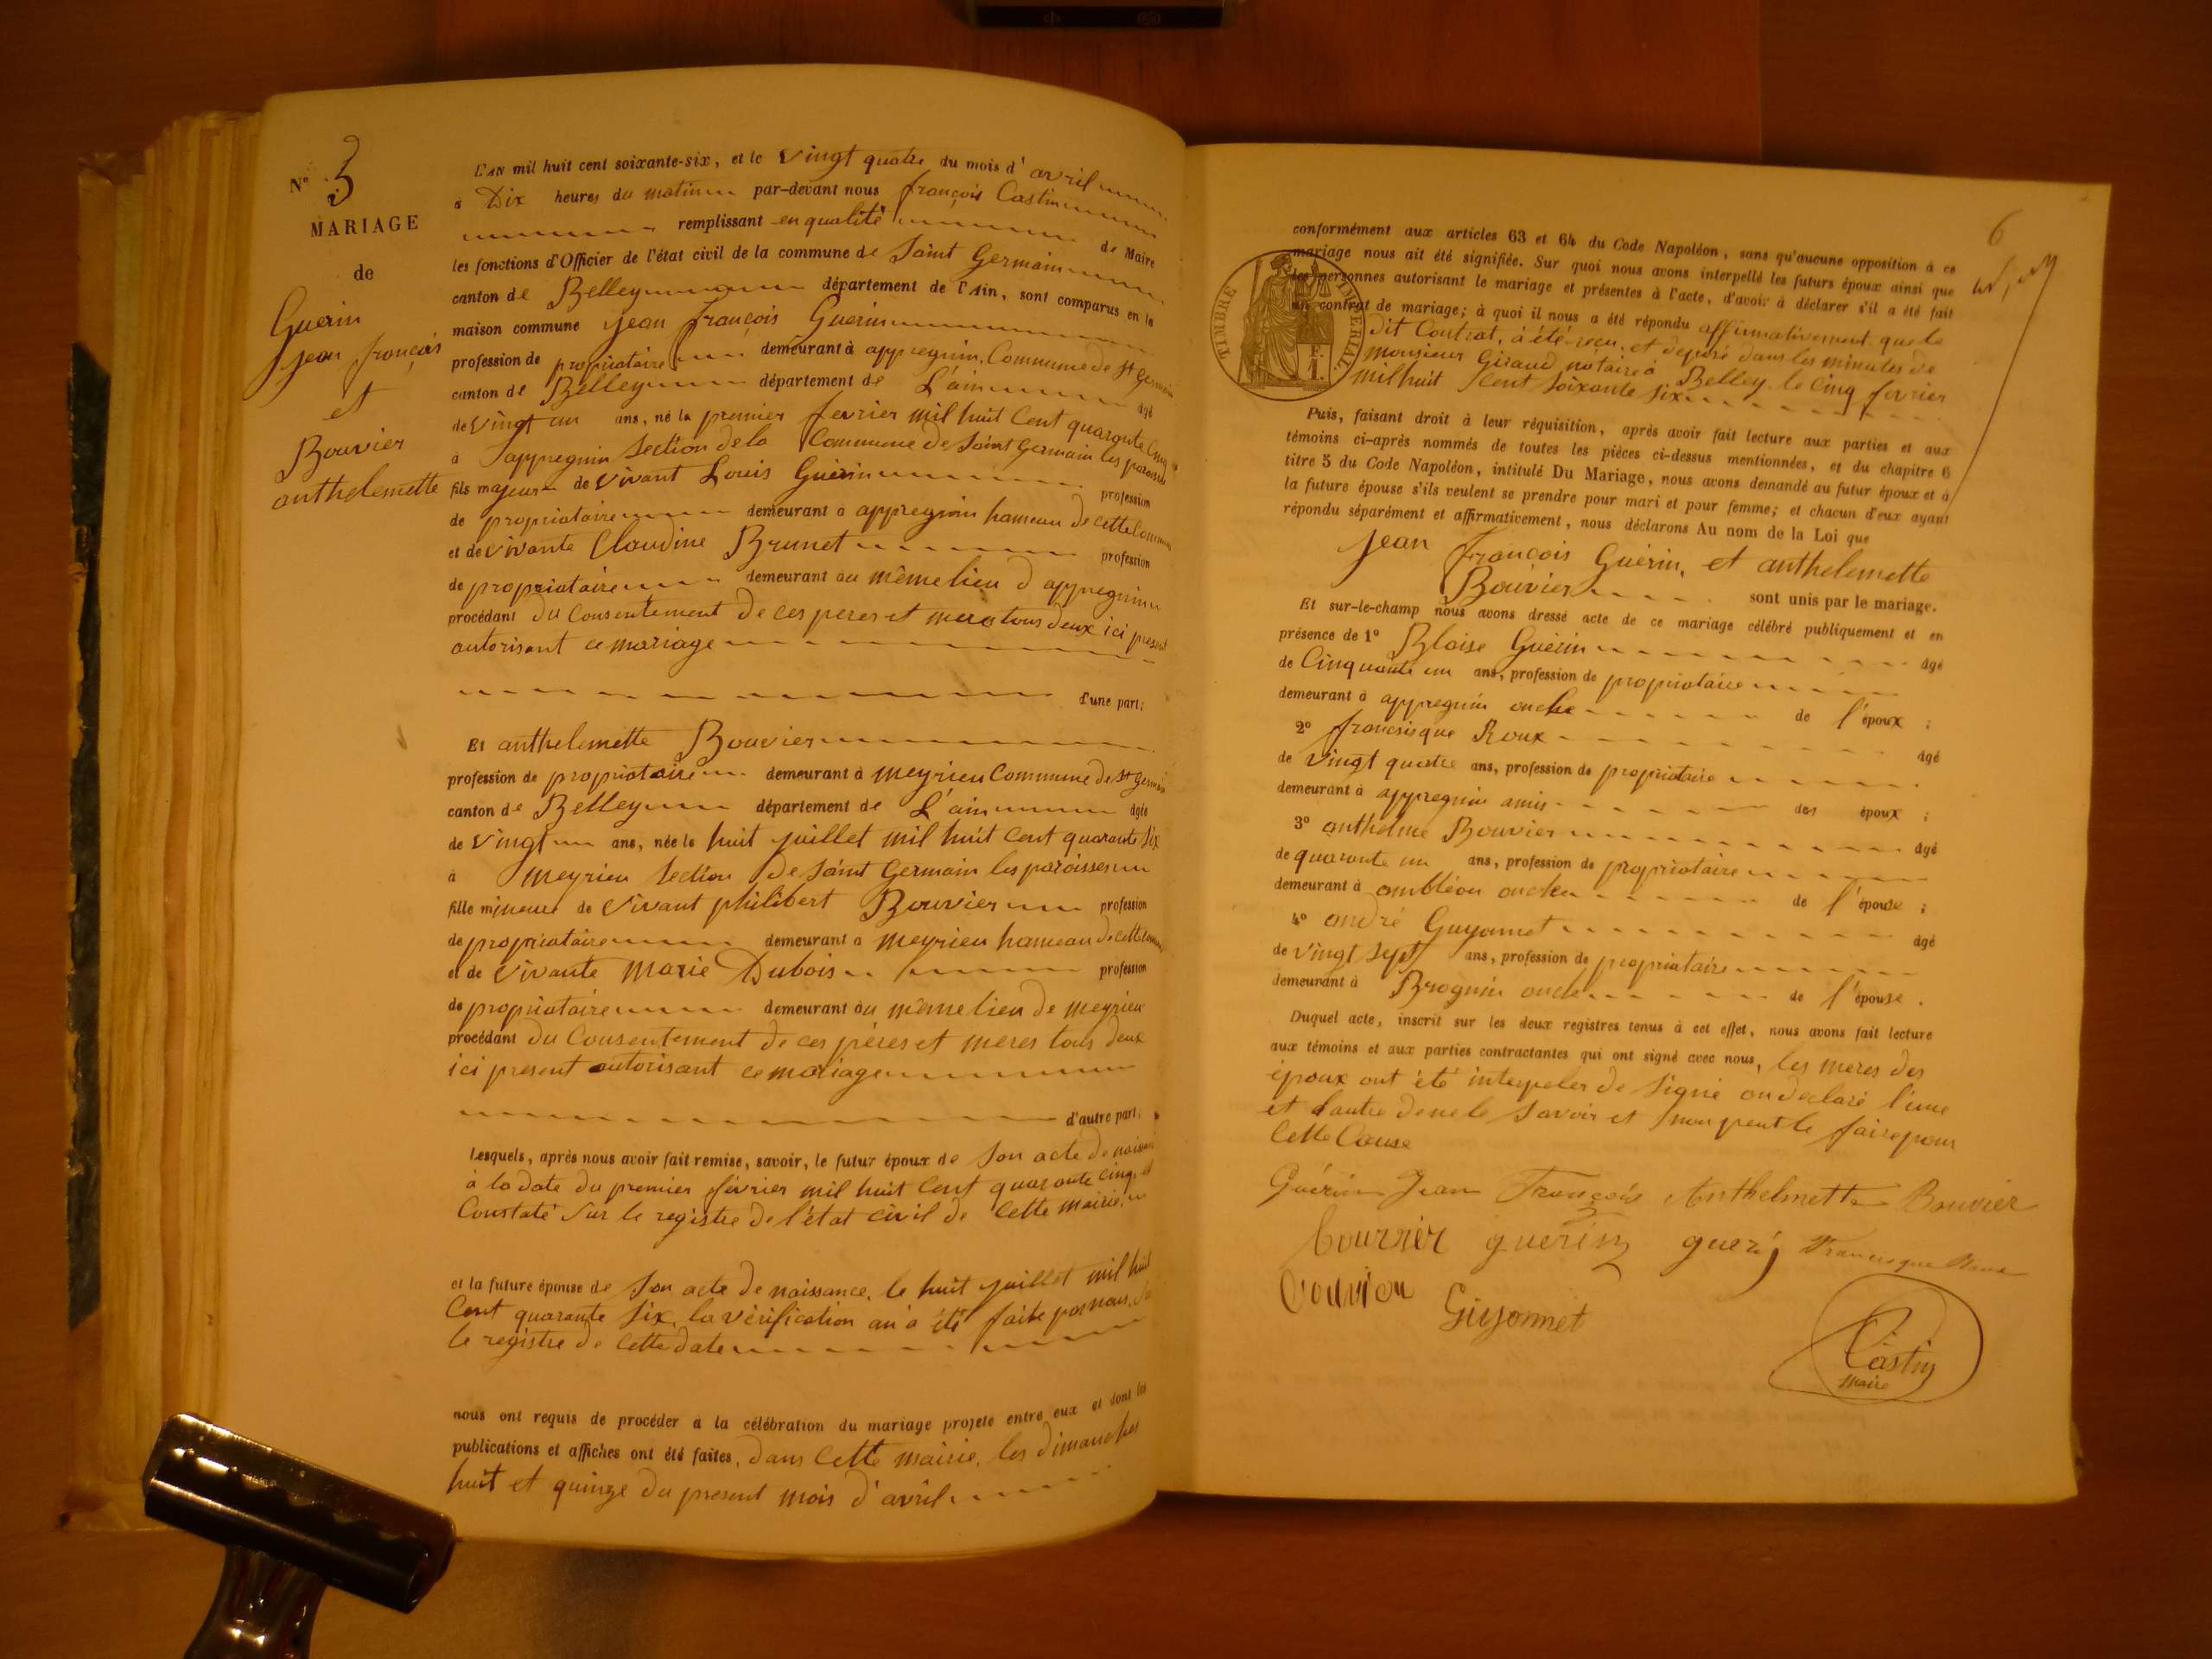 N° 3
MARIAGE
de
Guerin
jean françois
et
Bouvier
anthelemette
L'AN mil huit cent soixante-six, et le vingt quatre du mois d'avril
à Dix heures du matin par-devant nous françois Castin
remplissant en qualité de Maire
les fonctions d'Officier de l'état civil de la commune de Saint Germain
canton de Belley département de l'Ain, sont comparus en la
maison commune jean françois Guerin
profession de propriataire demeurant à appregnin, Commune de St germain
canton de Belley département de L'ain âgé
de vingt un ans, né le premier fevrier mil huit Cent quarante Cinq
à appregnin Section de la Commune de Saint Germain les paroisses
fils majeur de vivant Louis Guérin profession
de propriataire demeurant à appregnin hameau de cette Commune
et de vivante Claudine Brunet profession
de propriataire demeurant au même lieu d'appregnin
procédant du Consentement de ces peres et mere tous deux ici present
autorisant ce mariage
d'une part;
Et anthelemette Bouvier
profession de propriataire demeurant à meyrieu Commune de St Germain
canton de Belley département de L'ain âgée
de vingt ans, née le huit juillet mil huit Cent quarante Six
à meyrieu Section de Saint Germain les paroisses
fille mineure de vivant philibert Bouvier profession
de propriataire demeurant à meyrieu hameau de cette Commune
et de vivante marie Dubois profession
de propriataire demeurant au même lieu de meyrieu
procédant du Consentement de ces péres et meres tous deux
ici present autorisant ce mariage
d'autre part;
Lesquels, après nous avoir fait remise, savoir, le futur époux de Son acte de naissance
à la date du premier février mil huit Cent quarante cinq, et
Constaté Sur le registre de l'état civil de cette mairie,
et la future épouse de Son acte de naissance, le huit juillet mil huit
Cent quarante Six, la vérification an à été faite par nous,
le registre de cette date
nous ont requis de procéder à la célébration du mariage projeté entre eux et dont les
publications et affiches ont été faites, dans cette mairie, les dimanches
huit et quinze du present mois d'avril
6
conformément aux articles 63 et 64 du Code Napoléon, sans qu'aucune opposition à ce
mariage nous ait été signifiée. Sur quoi nous avons interpellé les futurs époux ainsi que
les personnes autorisant le mariage et présentes à l'acte, d'avoir à déclarer s'il a été fait
un contrat de mariage; à quoi il nous a été répondu affirmativement que le
TIMBRE IMPERIAL
dit Contrat, à été reçu, et deposé dans les minutes de
monsieur Giraud notaire à Belley, le cinq fevrier
mil huit Cent Soixante Six
Puis, faisant droit à leur réquisition, après avoir fait lecture aux parties et aux
témoins ci-après nommés de toutes les pièces ci-dessus mentionnées, et du chapitre 6
titre 5 du Code Napoléon, intitulé Du Mariage, nous avons demandé au futur époux et à
la future épouse s'ils veulent se prendre pour mari et pour femme; et chacun d'eux ayant
répondu séparément et affirmativement, nous déclarons Au nom de la Loi que
jean françois Guérin, et anthelemette
Bouvier sont unis par le mariage.
Et sur-le-champ nous avons dressé acte de ce mariage célébré publiquement et en
présence de 1° Blaise Guérin âgé
de Cinquante un ans, profession de propriataire
demeurant à appregnin oncle de l'époux ;
2° francisque Roux âgé
de vingt quatre ans, profession de propriataire
demeurant à appregnin amis des époux ;
3° anthelme Bouvier âgé
de quarante un ans, profession de propriataire
demeurant à ambléon oncle de l'épouse ;
4° andré Guyonnet âgé
de vingt Sept ans, profession de propriataire
demeurant à Brognin oncle de l'épouse.
Duquel acte, inscrit sur les deux registres tenus à cet effet, nous avons fait lecture
aux témoins et aux parties contractantes qui ont signé avec nous, les meres des
époux ont été interpeler de Signé on déclaré l'une
et l'autre de ne le Savoir et non peut le faire pour
Cette Cause
Guérin Jean François Anthelmette Bouvier
bouvier guerin guerin Francisque Roux
bouvier
Guyonnet
Castin
maire